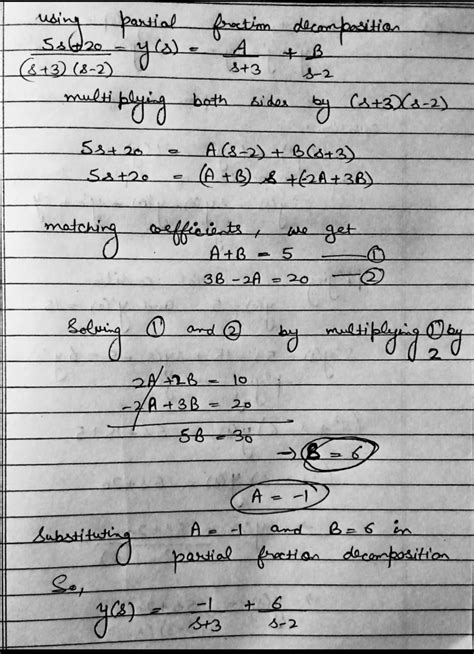 using partial fraction decomposition
5s+20/(s+3)(s-2) = y(s) = A/s+3 + B/s-2
multiplying both sides by (s+3)(s-2)
5s+20 = A(s-2) + B(s+3)
5s+20 = (A+B) s +(-2A+3B)
matching coefficients, we get
A+B = 5 — ①
3B-2A = 20 — ②
Solving ① and ② by multiplying ① by 2
2A+2B = 10
-2A+3B = 20
5B = 30
→ B = 6
A = -1
Substituting A = -1 and B = 6 in
partial fraction decomposition
So,
y(s) = -1/s+3 + 6/s-2